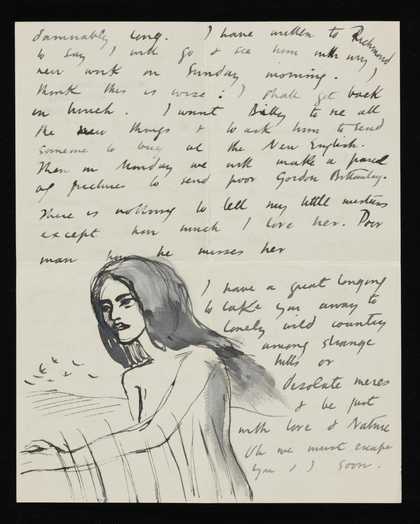 damnably long. I have written to Richmond
to say I will go & see him with my
new work on Sunday morning. I
think this is wise. I shall get back
in lunch. I want Billy to see all
the new things & to ask him to send
someone to buy at the New English.
Then on Monday we will make a parcel
of pictures to send poor Gordon Bottomley.
There is nothing to tell my little mistress
except how much I love her. Poor
man how he misses her
I have a great longing
to take you away to
lonely wild country
among strange
hills or
desolate meres
& be just
with love & Nature
Oh we must escape
you & I soon.